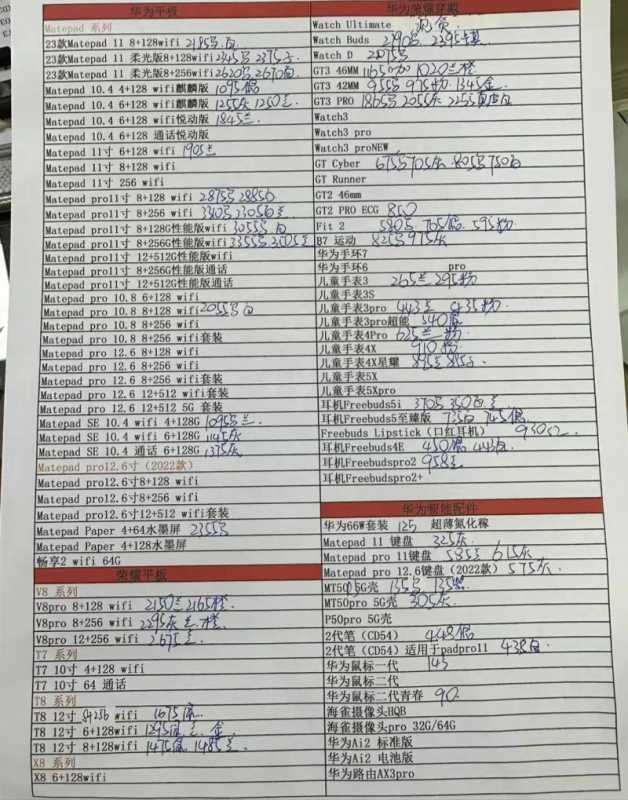 华为平板
Matepad 系列
23款Matepad 11 8+128wifi 2185
23款Matepad 11 柔光版8+128wifi 2375
23款Matepad 11 柔光版8+256wifi 2620 2670白
Matepad 10.4 4+128 wifi麒麟版 1095
Matepad 10.4 6+128 wifi麒麟版 1255灰 1250兰
Matepad 10.4 6+128 wifi悦动版 1845兰
Matepad 10.4 6+128 通话悦动版
Matepad 11寸 6+128 wifi 1905兰
Matepad 11寸 8+128 wifi
Matepad 11寸 256 wifi
Matepad pro11寸 8+128 wifi 2875
Matepad pro11寸 8+256 wifi
Matepad pro11寸 8+128G性能版wifi 3055 白
Matepad pro11寸 8+256G性能版wifi 3355
Matepad pro11寸 12+512G性能版wifi
Matepad pro11寸 8+256G性能版通话
Matepad pro11寸 12+512G性能版通话
Matepad pro 10.8 6+128 wifi
Matepad pro 10.8 8+128 wifi 2055 白
Matepad pro 10.8 8+256 wifi
Matepad pro 10.8 8+256 wifi套装
Matepad pro 12.6 8+128 wifi
Matepad pro 12.6 8+256 wifi
Matepad pro 12.6 8+256 wifi套装
Matepad pro 12.6 12+512 wifi套装
Matepad pro 12.6 12+512 5G 套装
Matepad SE 10.4 wifi 4+128G 1095
Matepad SE 10.4 wifi 6+128G 1145灰
Matepad SE 10.4 通话 6+128G 1375灰
Matepad pro12.6寸（2022款）
Matepad pro12.6寸8+128 wifi
Matepad pro12.6寸8+256 wifi
Matepad pro12.6寸12+512 wifi套装
Matepad Paper 4+64水墨屏 2355
Matepad Paper 4+128水墨屏
畅享2 wifi 64G
荣耀平板
V8 系列
V8pro 8+128 wifi 2150兰 2165橙
V8pro 8+256 wifi 2295灰 兰.橙
V8pro 12+256 wifi 2675兰
T7 系列
T7 10寸 4+128 wifi
T7 10寸 64 通话
T8 系列
T8 12寸 8+256 wifi 1675
T8 12寸 6+128wifi 1295 兰.金
T8 12寸 8+128wifi 1475 1485兰
X8 系列
X8 6+128wifi
华为荣耀穿戴
Watch Ultimate
Watch Buds 2190 2395
Watch D 2075
GT3 46MM 1165 1020 橙
GT3 42MM 955 975粉 1345金
GT3 PRO 1865 2055灰 2255
Watch3
Watch3 pro
Watch3 proNEW
GT Cyber 675 705灰 805 750白
GT Runner
GT2 46mm
GT2 PRO ECG 850
Fit 2 580 705 595粉
B7 运动 825 975灰
华为手环7
华为手环6 pro
儿童手表3 265兰 295粉
儿童手表3S
儿童手表3pro 443兰 435粉
儿童手表3pro超能 540
儿童手表4Pro 625兰 粉
儿童手表4X 910粉
儿童手表4X星耀 845兰
儿童手表5X
儿童手表5Xpro
耳机Freebuds5i 370 350白 兰
耳机Freebuds5至臻版 735白 745
Freebuds Lipstick（口红耳机） 930红
耳机Freebuds4E 450 443白
耳机Freebudspro2 958兰
耳机Freebudspro2+
华为智能配件
华为66W套装 125 超薄氮化稼
Matepad 11 键盘 325灰
Matepad pro 11键盘 585兰 615灰
Matepad pro 12.6键盘（2022款）575灰
MT50 5G壳 155 135
MT50pro 5G壳 305灰
P50pro 5G壳
2代笔（CD54） 448
2代笔（CD54）适用于padpro11 438白
华为鼠标一代 145
华为鼠标二代
华为鼠标二代青春 90
海雀摄像头HQB
海雀摄像头pro 32G/64G
华为Ai2 标准版
华为Ai2 电池版
华为路由AX3pro